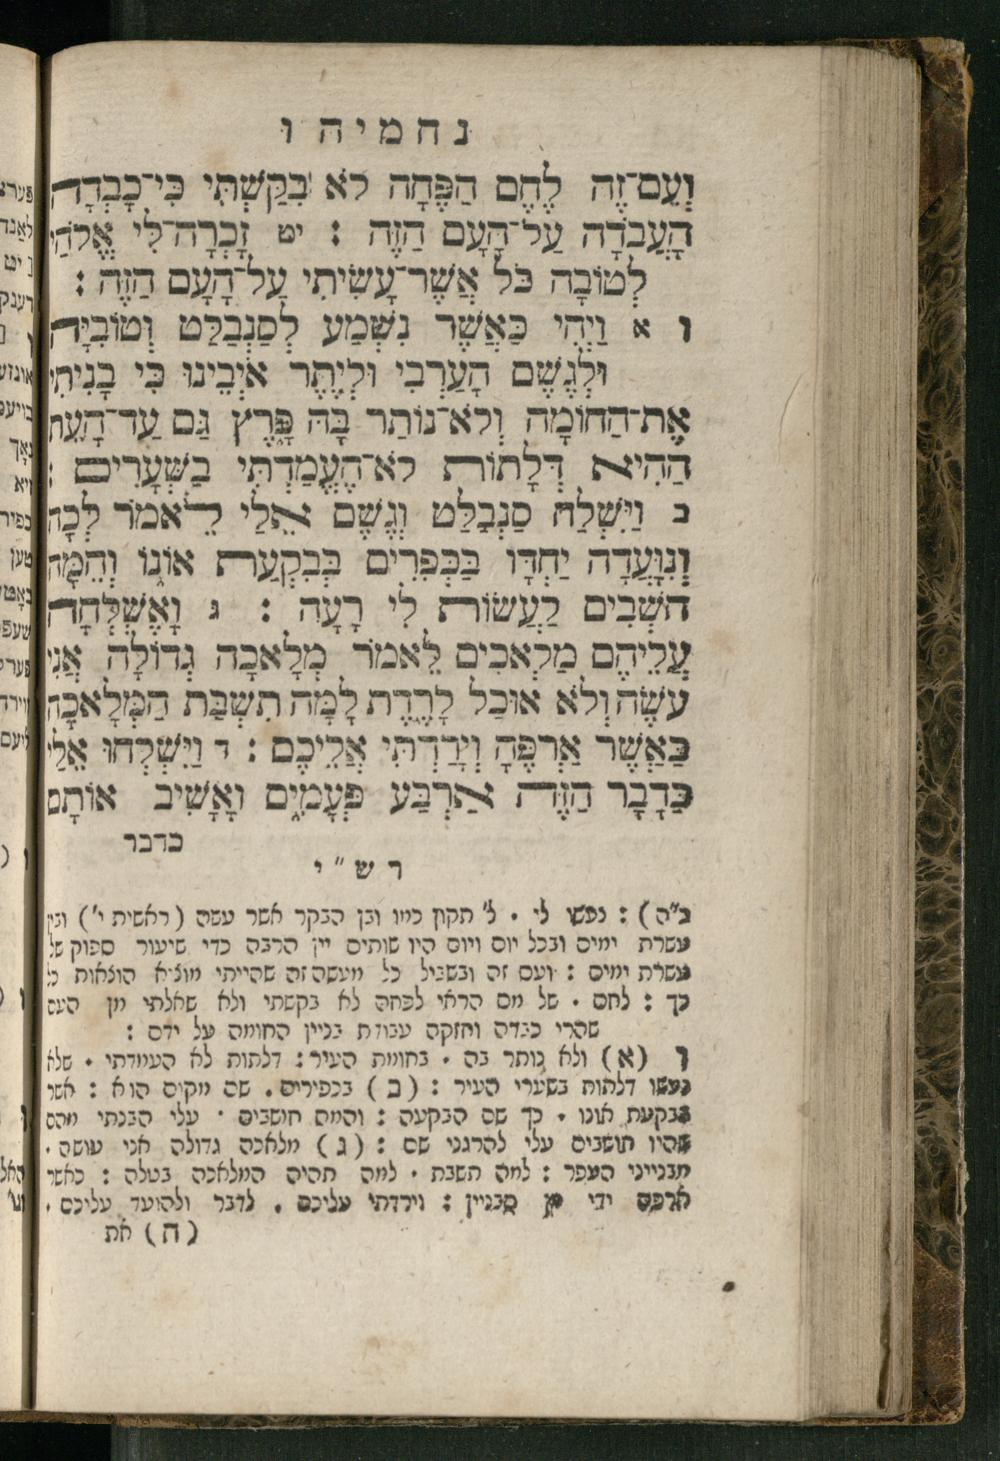 נחמיה ו
וְעִם־זֶה לֶחֶם הַפֶּחָה לֹא בִקַּשְׁתִּי כִּי־כָבְדָה
הָעֲבֹדָה עַל־הָעָם הַזֶּה : יט זָכְרָה־לִּי אֱלֹהַי
לְטוֹבָה כֹּל אֲשֶׁר־עָשִׂיתִי עַל־הָעָם הַזֶּה :
ו א וַיְהִי כַּאֲשֶׁר נִשְׁמַע לְסַנְבַלַּט וְטוֹבִיָּה
וּלְגֶשֶׁם הָעַרְבִי וּלְיֶתֶר אֹיְבֵינוּ כִּי בָנִיתִי
אֶת־הַחוֹמָה וְלֹא־נוֹתַר בָּהּ פָּרֶץ גַּם עַד־הָעֵת
הַהִיא דְּלָתוֹת לֹא־הֶעֱמַדְתִּי בַשְּׁעָרִים :
ב וַיִּשְׁלַח סַנְבַלַּט וְגֶשֶׁם אֵלַי לֵאמֹר לְכָה
וְנִוָּעֲדָה יַחְדָּו בַּכְּפִרִים בְּבִקְעַת אוֹנוֹ וְהֵמָּה
חֹשְׁבִים לַעֲשׂוֹת לִי רָעָה : ג וָאֶשְׁלְחָה
עֲלֵיהֶם מַלְאָכִים לֵאמֹר מְלָאכָה גְדוֹלָה אֲנִי
עֹשֶׂה וְלֹא אוּכַל לָרֶדֶת לָמָּה תִשְׁבַּת הַמְּלָאכָה
כַּאֲשֶׁר אַרְפֶּהָ וְיָרַדְתִּי אֲלֵיכֶם : ד וַיִּשְׁלְחוּ אֵלַי
כַּדָּבָר הַזֶּה אַרְבַּע פְּעָמִים וָאָשִׁיב אוֹתָם
כדבר
רש״י
ב"ה) : נעשו לי . ל' תקון כמו ובן הבקר אשר עשה (ראשית י') ובין
עשרת ימים ובכל יום ויום היו שותים יין הרבה כדי שיעור ספוק של
עשרת ימים : ועם זה ובשביל כל מעשה זה שהייתי מוציא הוצאות כל
כך : לחם . של מס הראוי לפחה לא בקשתי ולא שאלתי מן העם
שהרי כבדה וחזקה עבודת בניין החומה על ידם :
ו (א) ולא נותר בה . בחומת העיר : דלתות לא העמדתי . שלא
נעשו דלתות בשערי העיר : (ב) בכפירים . שם מקום הוא : אשר
בבקעת אונו . כך שם הבקעה : והמה חושבים . עלי הבנתי מהם
שהיו חושבים עלי להרגני שם : (ג) מלאכה גדולה אני עושה .
מבנייני העפר : למה תשבת . למה תהיה המלאכה בטלה : כאשר
ארפה ידי מן הבניין : וירדתי עליכם . לדבר ולהועד עליכם .
(ה) את